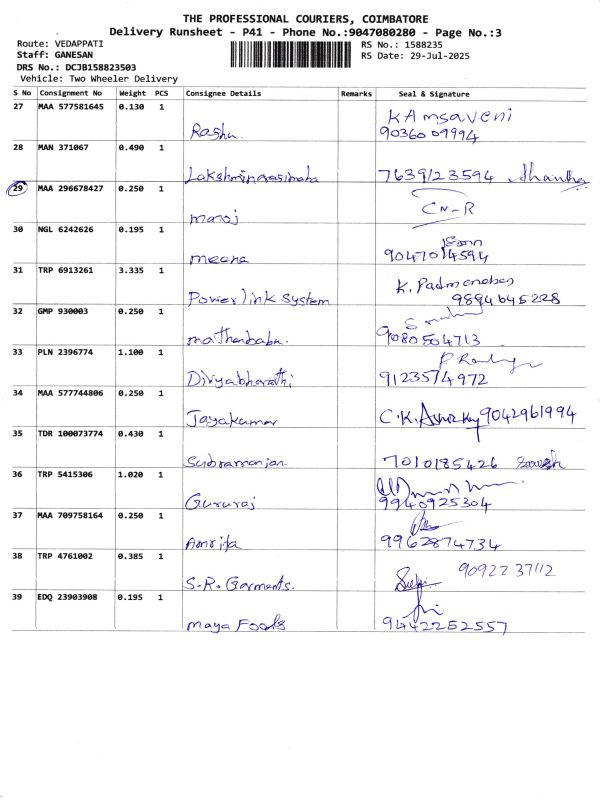 THE PROFESSIONAL COURIERS, COIMBATORE
Delivery Runsheet - P41 - Phone No.:9047080280 - Page No.:3
Route: VEDAPPATI
Staff: GANESAN
DRS No.: DCJB158823503
Vehicle: Two Wheeler Delivery
RS No.: 1588235
RS Date: 29-Jul-2025
S No Consignment No Weight PCS Consignee Details Remarks Seal & Signature
27 MAA 577581645 0.130 1
KAmsaveni
Rasha. 9036009994
28 MAN 371067 0.490 1
Lakshminarasimaha 7639123594 Shantha
29 MAA 296678427 0.250 1
manoj CN-R
30 NGL 6242626 0.195 1
meena 9047014594
31 TRP 6913261 3.335 1
K. Padmanaban
Powerlink System 9894645228
32 GMP 930003 0.250 1
mathanbabu. 9080504713
33 PLN 2396774 1.100 1
Divyabharathi 9123574972
34 MAA 577744806 0.250 1
Jayakumar C.K. 9042961994
35 TDR 100073774 0.430 1
Subramanian. 7010185426
36 TRP 5415306 1.020 1
Gururaj 9940925304
37 MAA 709758164 0.250 1
Amrita 9962874734
38 TRP 4761002 0.385 1
90922 37112
S.R. Garments.
39 EDQ 23903908 0.195 1
maya Foods 9442252557